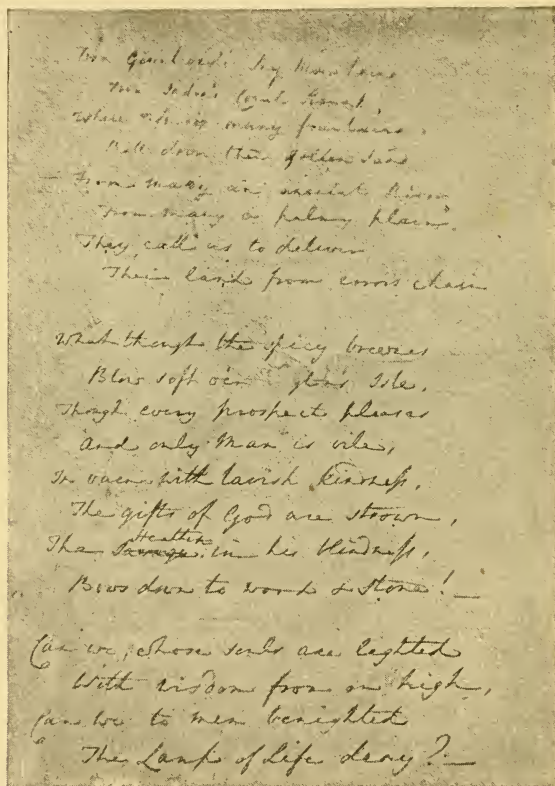 From Greenland's Icy Mountains
From India's Coral Strand
Where Afric's sunny fountains
Roll down their golden Sand
From many an ancient River
From many a palmy plain.
They call us to deliver
Their land from errors chain

What though the spicy breezes
Blow soft o'er Isle,
Though every prospect pleases
And only Man is vile,
In vain with lavish Kindness,
The gifts of God are strown,
The Savage Heathen in his blindness,
Bows down to wood & stone! —

Can we, whose souls are lighted
With wisdom from on high,
Can we to men benighted
The Lamp of Life deny? —